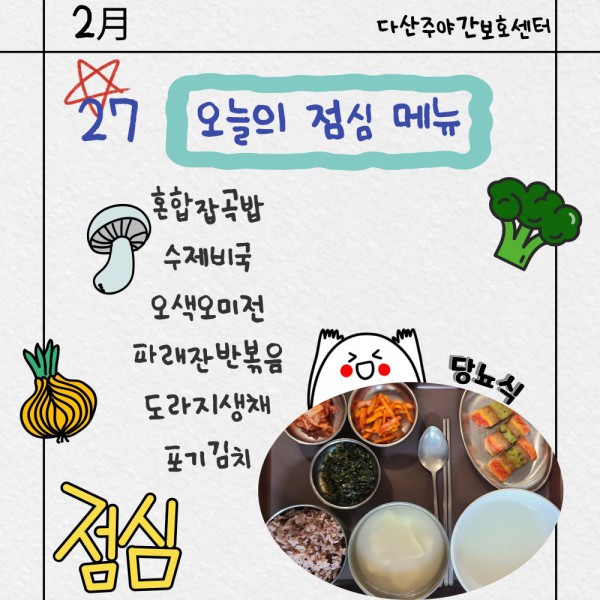 2月
다산주야간보호센터
27 오늘의 점심 메뉴
혼합잡곡밥
수제비국
오색오미전
파래잔반볶음
도라지생채
포기김치
당뇨식
점심